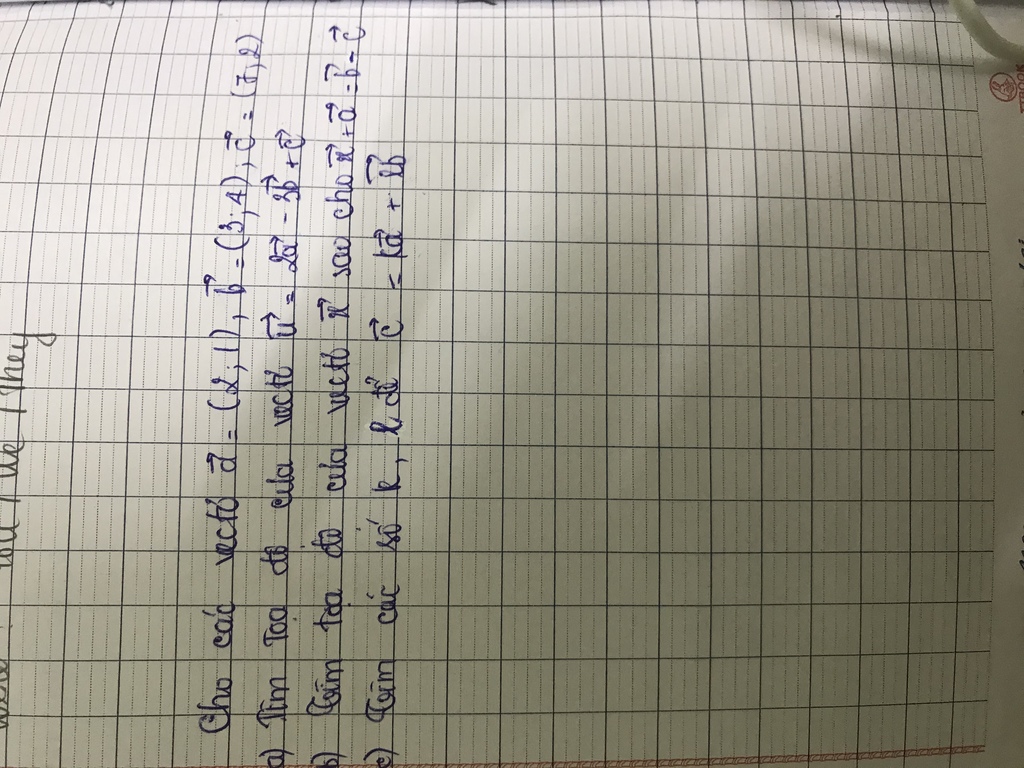 You / We / They
Cho các vectơ a⃗ = (2; 1), b⃗ = (3; 4), c⃗ = (7; 2)
a) Tìm tọa độ của vectơ u⃗ = 2a⃗ - 3b⃗ + c⃗
b) Tìm tọa độ của vectơ x⃗ sao cho x⃗ + a⃗ = b⃗ - c⃗
c) Tìm các số k, l để c⃗ = ka⃗ + lb⃗